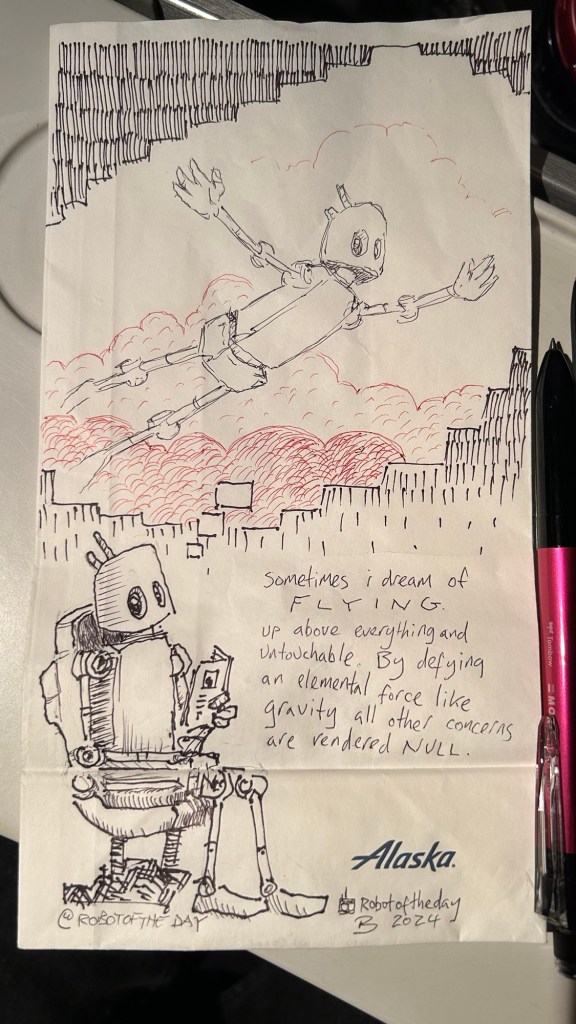 sometimes i dream of
FLYING.
up above everything and
untouchable. By defying
an elemental force like
gravity all other concerns
are rendered NULL.
Alaska.
Robotoftheday
B 2024
@ROBOTOFTHEDAY
Tombow